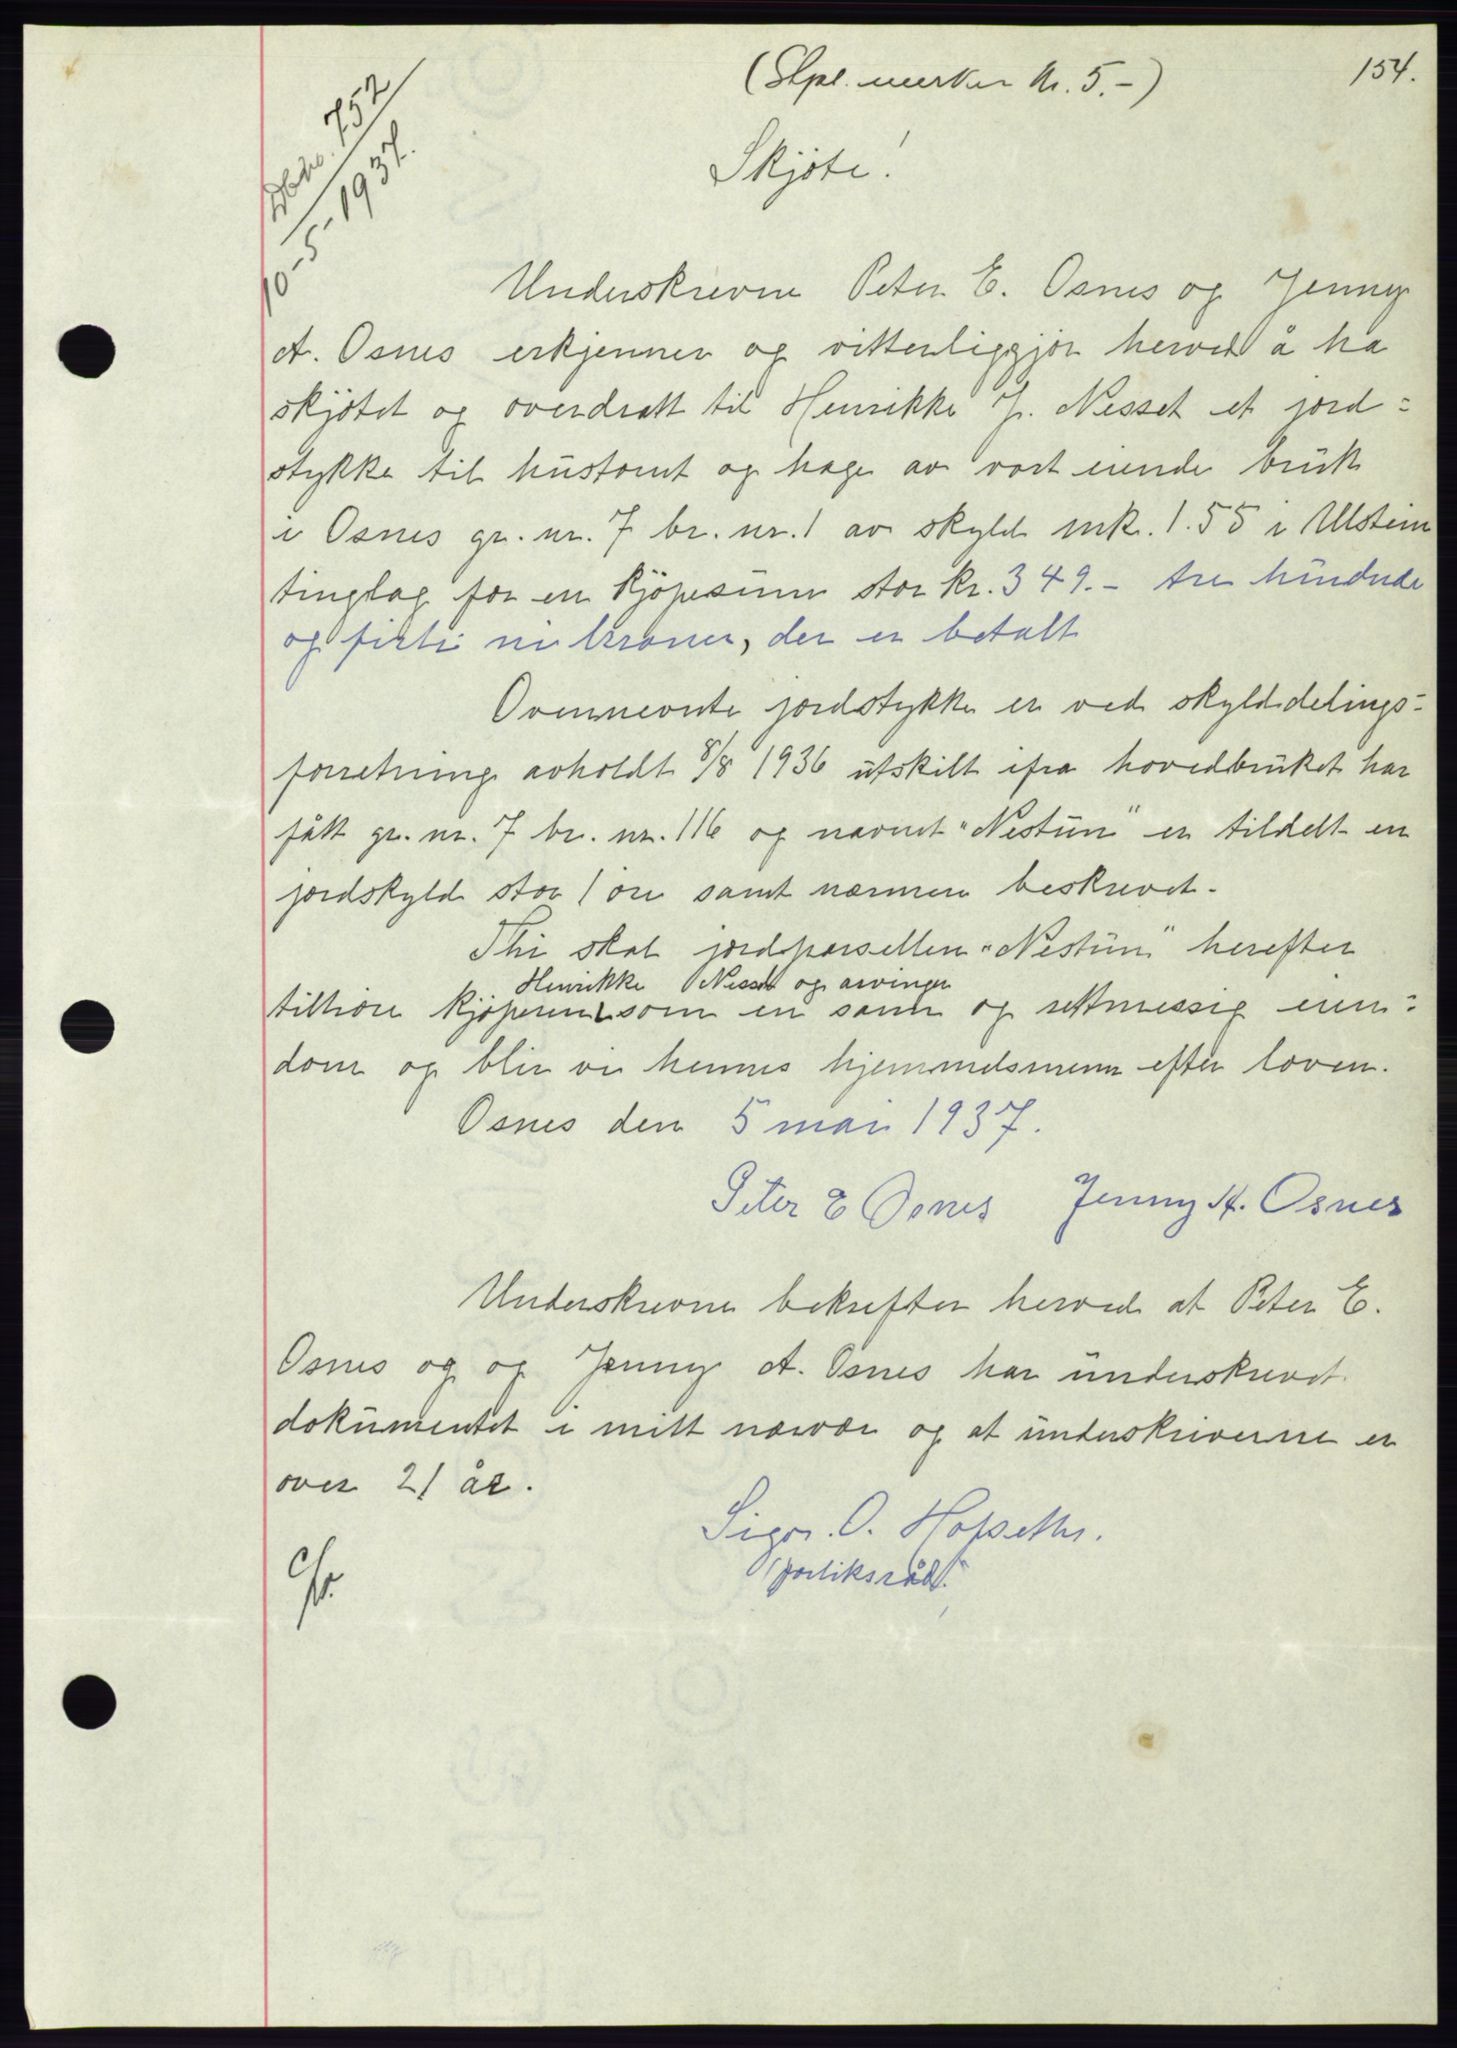 154.
(Stpl. merker kr. 5.-)
Dbkn. 752
10-5-1937.
Skjöte!
Underskrevne Peter E. Osnes og Jenny
A. Osnes erkjenner og vitterliggjör herved å ha
skjötet og overdratt til Henrikke J. Nesset et jord=
stykke til hustomt og hage av vort eiende bruk
i Osnes gr. nr. 7 br. nr. 1 av skyld mk. 1.55 i Ulstein
tinglag for en kjöpesum stor kr. 349.- tre hundrede
og firti ni kroner, der er betalt
Ovennevnte jordstykke er ved skylddelings=
forretning avholdt 8/8 1936 utskilt ifra hovedbruket har
fått gr. nr. 7 br. nr. 116 og navnet "Nestun" er tildelt en
jordskyld stor 1 öre samt nærmere beskrevet.
Thi skal jordparsellen "Nestun" herefter
Henrikke Nesset og arvinger
tilhöre kjöperen som en sann og rettmessig eien=
dom og blir vi hennes hjemmelsmenn efter loven.
Osnes den 5 mai 1937.
Peter E Osnes Jenny A. Osnes
Underskrevne bekrefter herved at Peter E.
Osnes og og Jenny A. Osnes har underskrevet
dokumentet i mitt nærvær og at underskriverne er
over 21 år.
Sigv. O. Hopseth.
forliksråd.